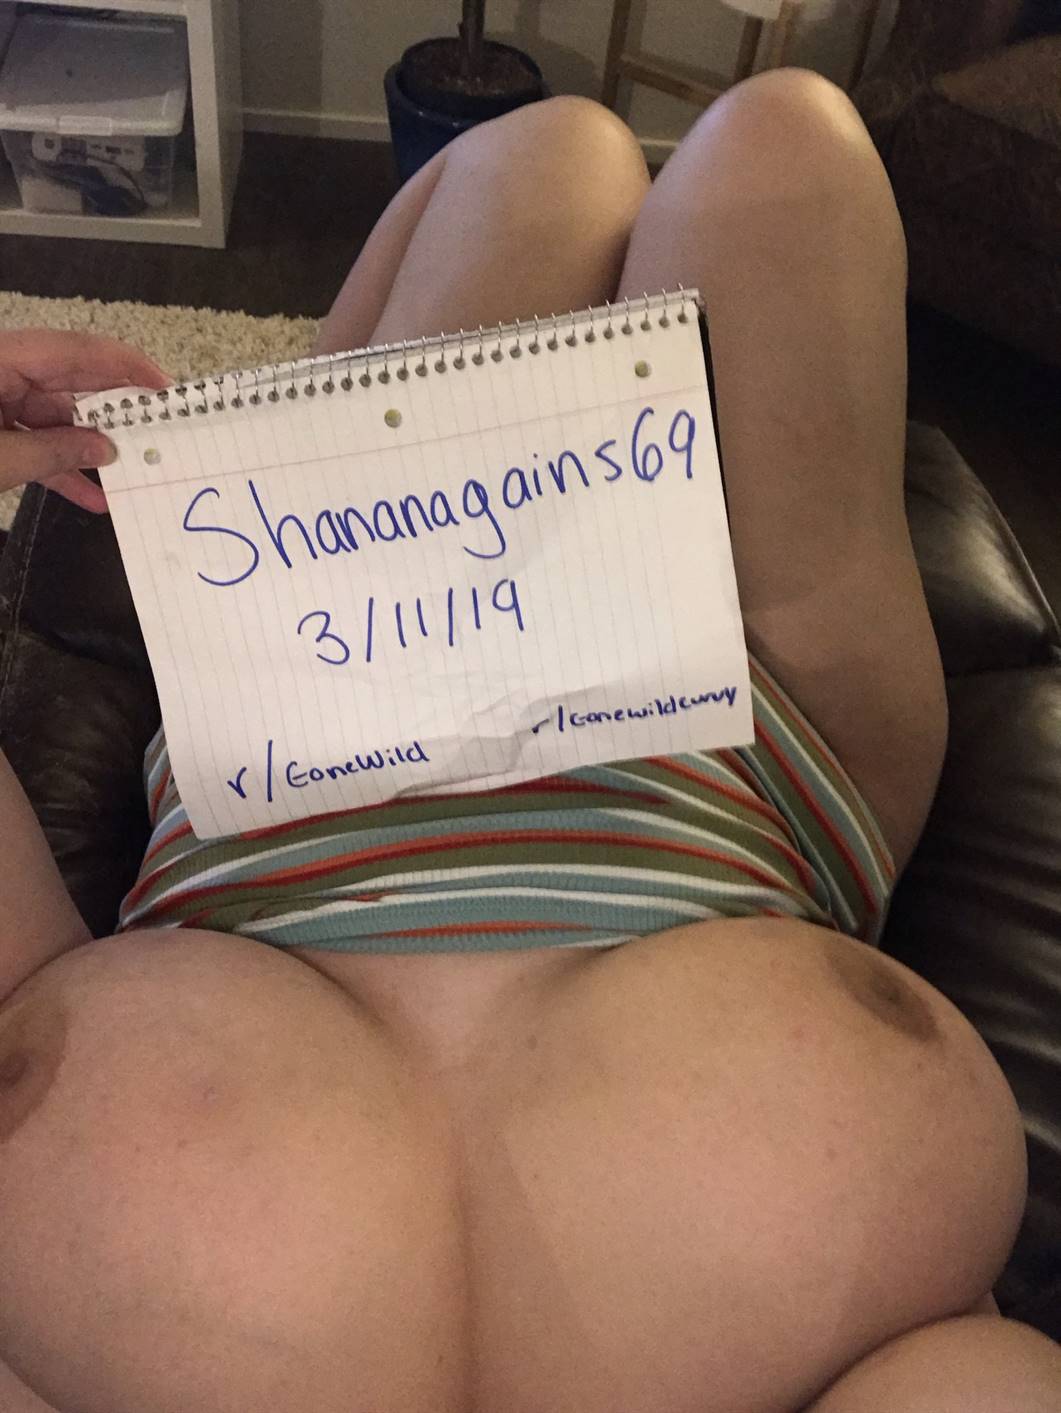 Shananagains69
3/11/19
r/GoneWild
r/Gonewildcurvy